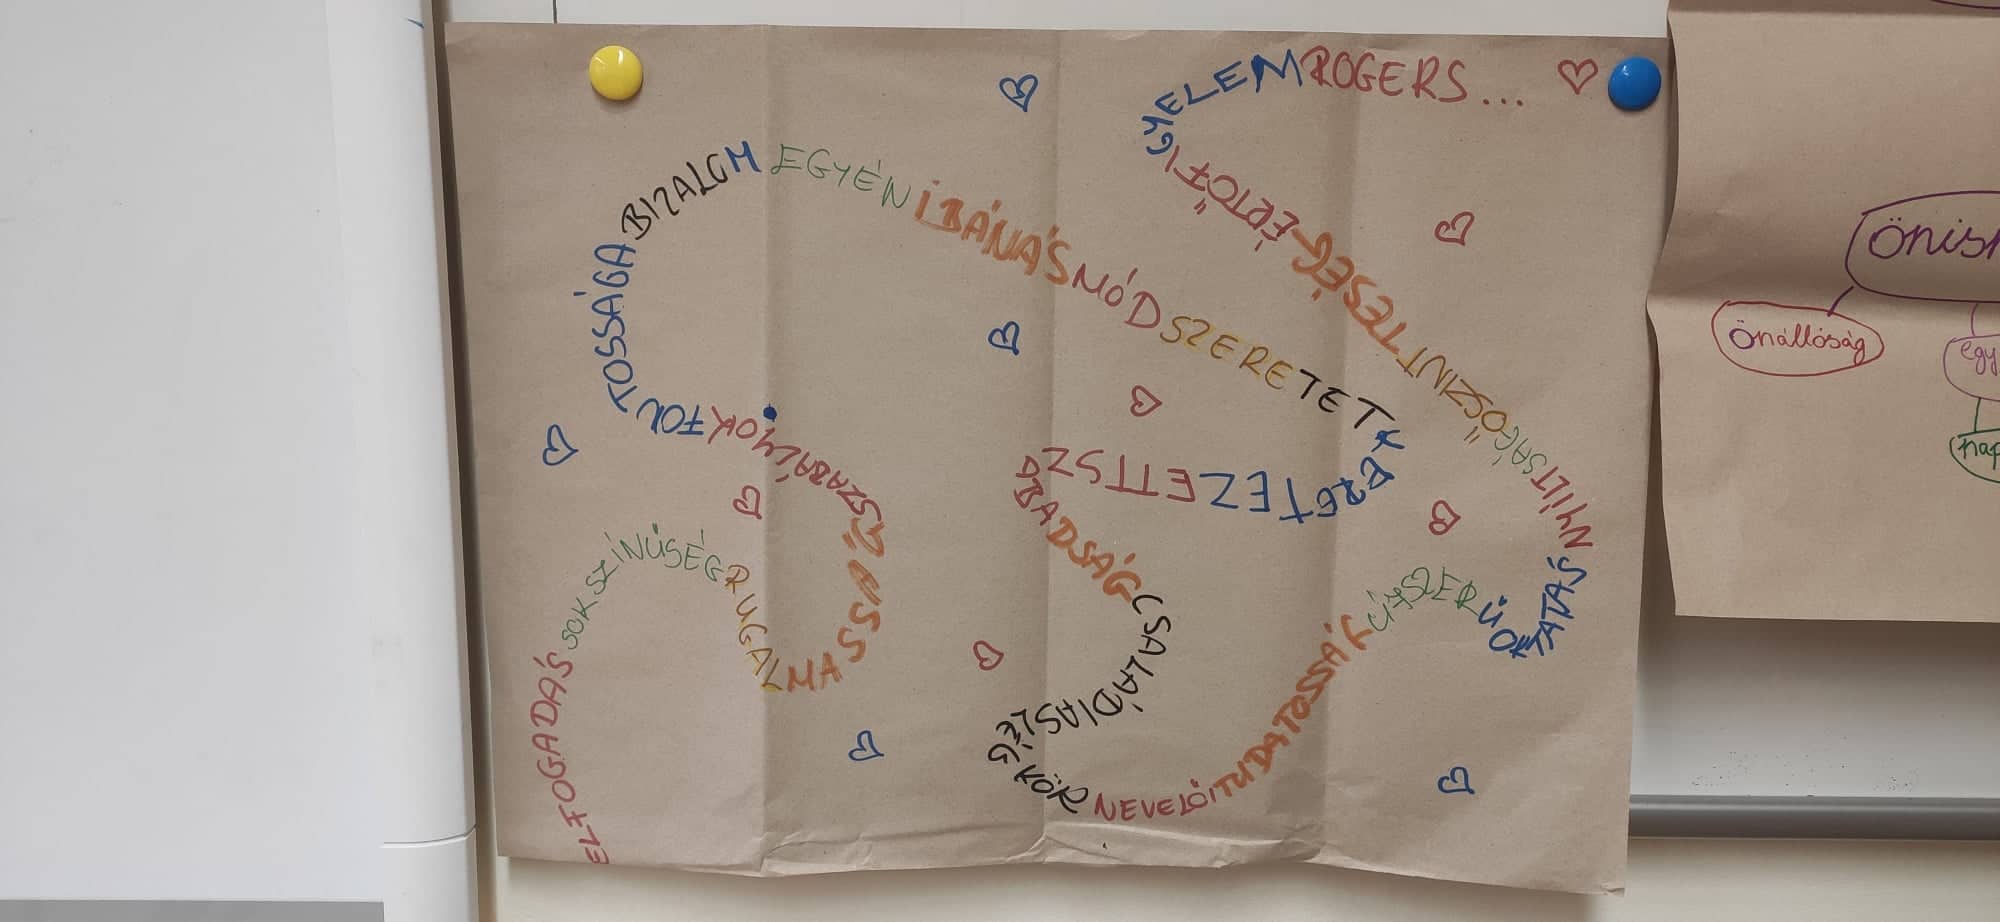 ELFOGADÁS
SOKSZÍNŰSÉG
RUGALMASSÁG
SZABÁLYOK FONTOSSÁGA
BIZALOM
EGYÉNI BÁNÁSMÓD
SZERETET
KERETEZETT SZABADSÁG
CSALÁDIAS LÉGKÖR
NEVELŐI TUDATOSSÁG
ÚJSZERŰ OKTATÁS
NYÍLTSÁG
ŐSZINTESÉG
ÉRTŐ FIGYELEM
ROGERS...
önis
önállóság
egy